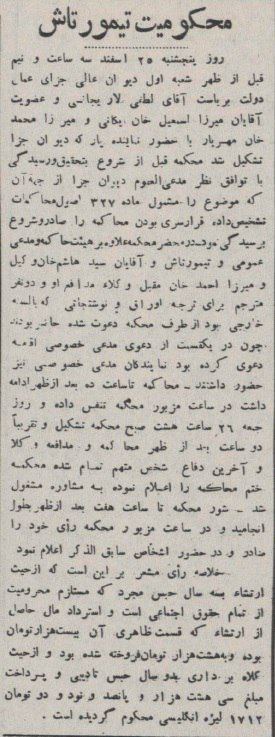 محکومیت تیمورتاش
روز پنجشنبه ۲۵ اسفند سه ساعت و نیم
قبل از ظهر شعبه اول دیوان عالی جزای عمال
دولت بریاست آقای لطفی لاریجانی و عضویت
آقایان میرزا اسمعیل خان یکانی و میرزا محمد
خان مهریار با حضور نماینده پارکه دیوان جزا
تشکیل شد محکمه قبل از شروع بتحقیق ورسیدگی
با توافق نظر مدعی العموم دیوان جزا از جهة آن
که موضوع را مشمول ماده ۳۲۷ اصول محاکمات
تشخیص داده قرار سری بودن محاکمه را صادر و شروع
برسیدگی نمودند در محضر محکمه علاوه بر هیئت حاکمه و مدعی
عمومی و تیمورتاش و آقایان سید هاشم خان وکیل
و میرزا احمد خان مقبل وکلاء مدافع او و دو نفر
مترجم برای ترجمه اوراق و نوشتجاتی که بالسنه
خارجی بود از طرف محکمه دعوت شده حاضر بودند
چون در یکقسمت از دعوی مدعی خصوصی اقامه
دعوی کرده بود نمایندگان مدعی خصوصی نیز
حضور داشتند ـ محاکمه تا ساعت ده بعد از ظهر ادامه
داشت در ساعت مزبور محکمه تنفس داده و روز
جمعه ۲۶ ساعت هشت صبح محکمه تشکیل و تقریباً
دو ساعت بعد از ظهر محاکمه و مدافعه وکلا
و آخرین دفاع شخص متهم تمام شده محکمه
ختم محاکمه را اعلام نموده به مشاوره مشغول
شد ـ شور محکمه تا ساعت هفت بعد از ظهر بطول
انجامید و در ساعت مزبور محکمه رأی خود را
صادر و در حضور اشخاص سابق الذکر اعلام نمود
خلاصه رأی مشعر بر این است که از حیث
ارتشاء بسه سال حبس مجرد که مستلزم محرومیت
از تمام حقوق اجتماعی است و استرداد مال حاصل
از ارتشاء که قسمت ظاهری آن بیست هزار تومان
بوده و به هشت هزار تومان فروخته شده بود و از حیث
کلاه برداری بدو سال حبس تادیبی و پرداخت
مبلغ سی هشت هزار و پانصد و نود و دو تومان
۱۷۱۲ لیره انگلیسی محکوم گردیده است .